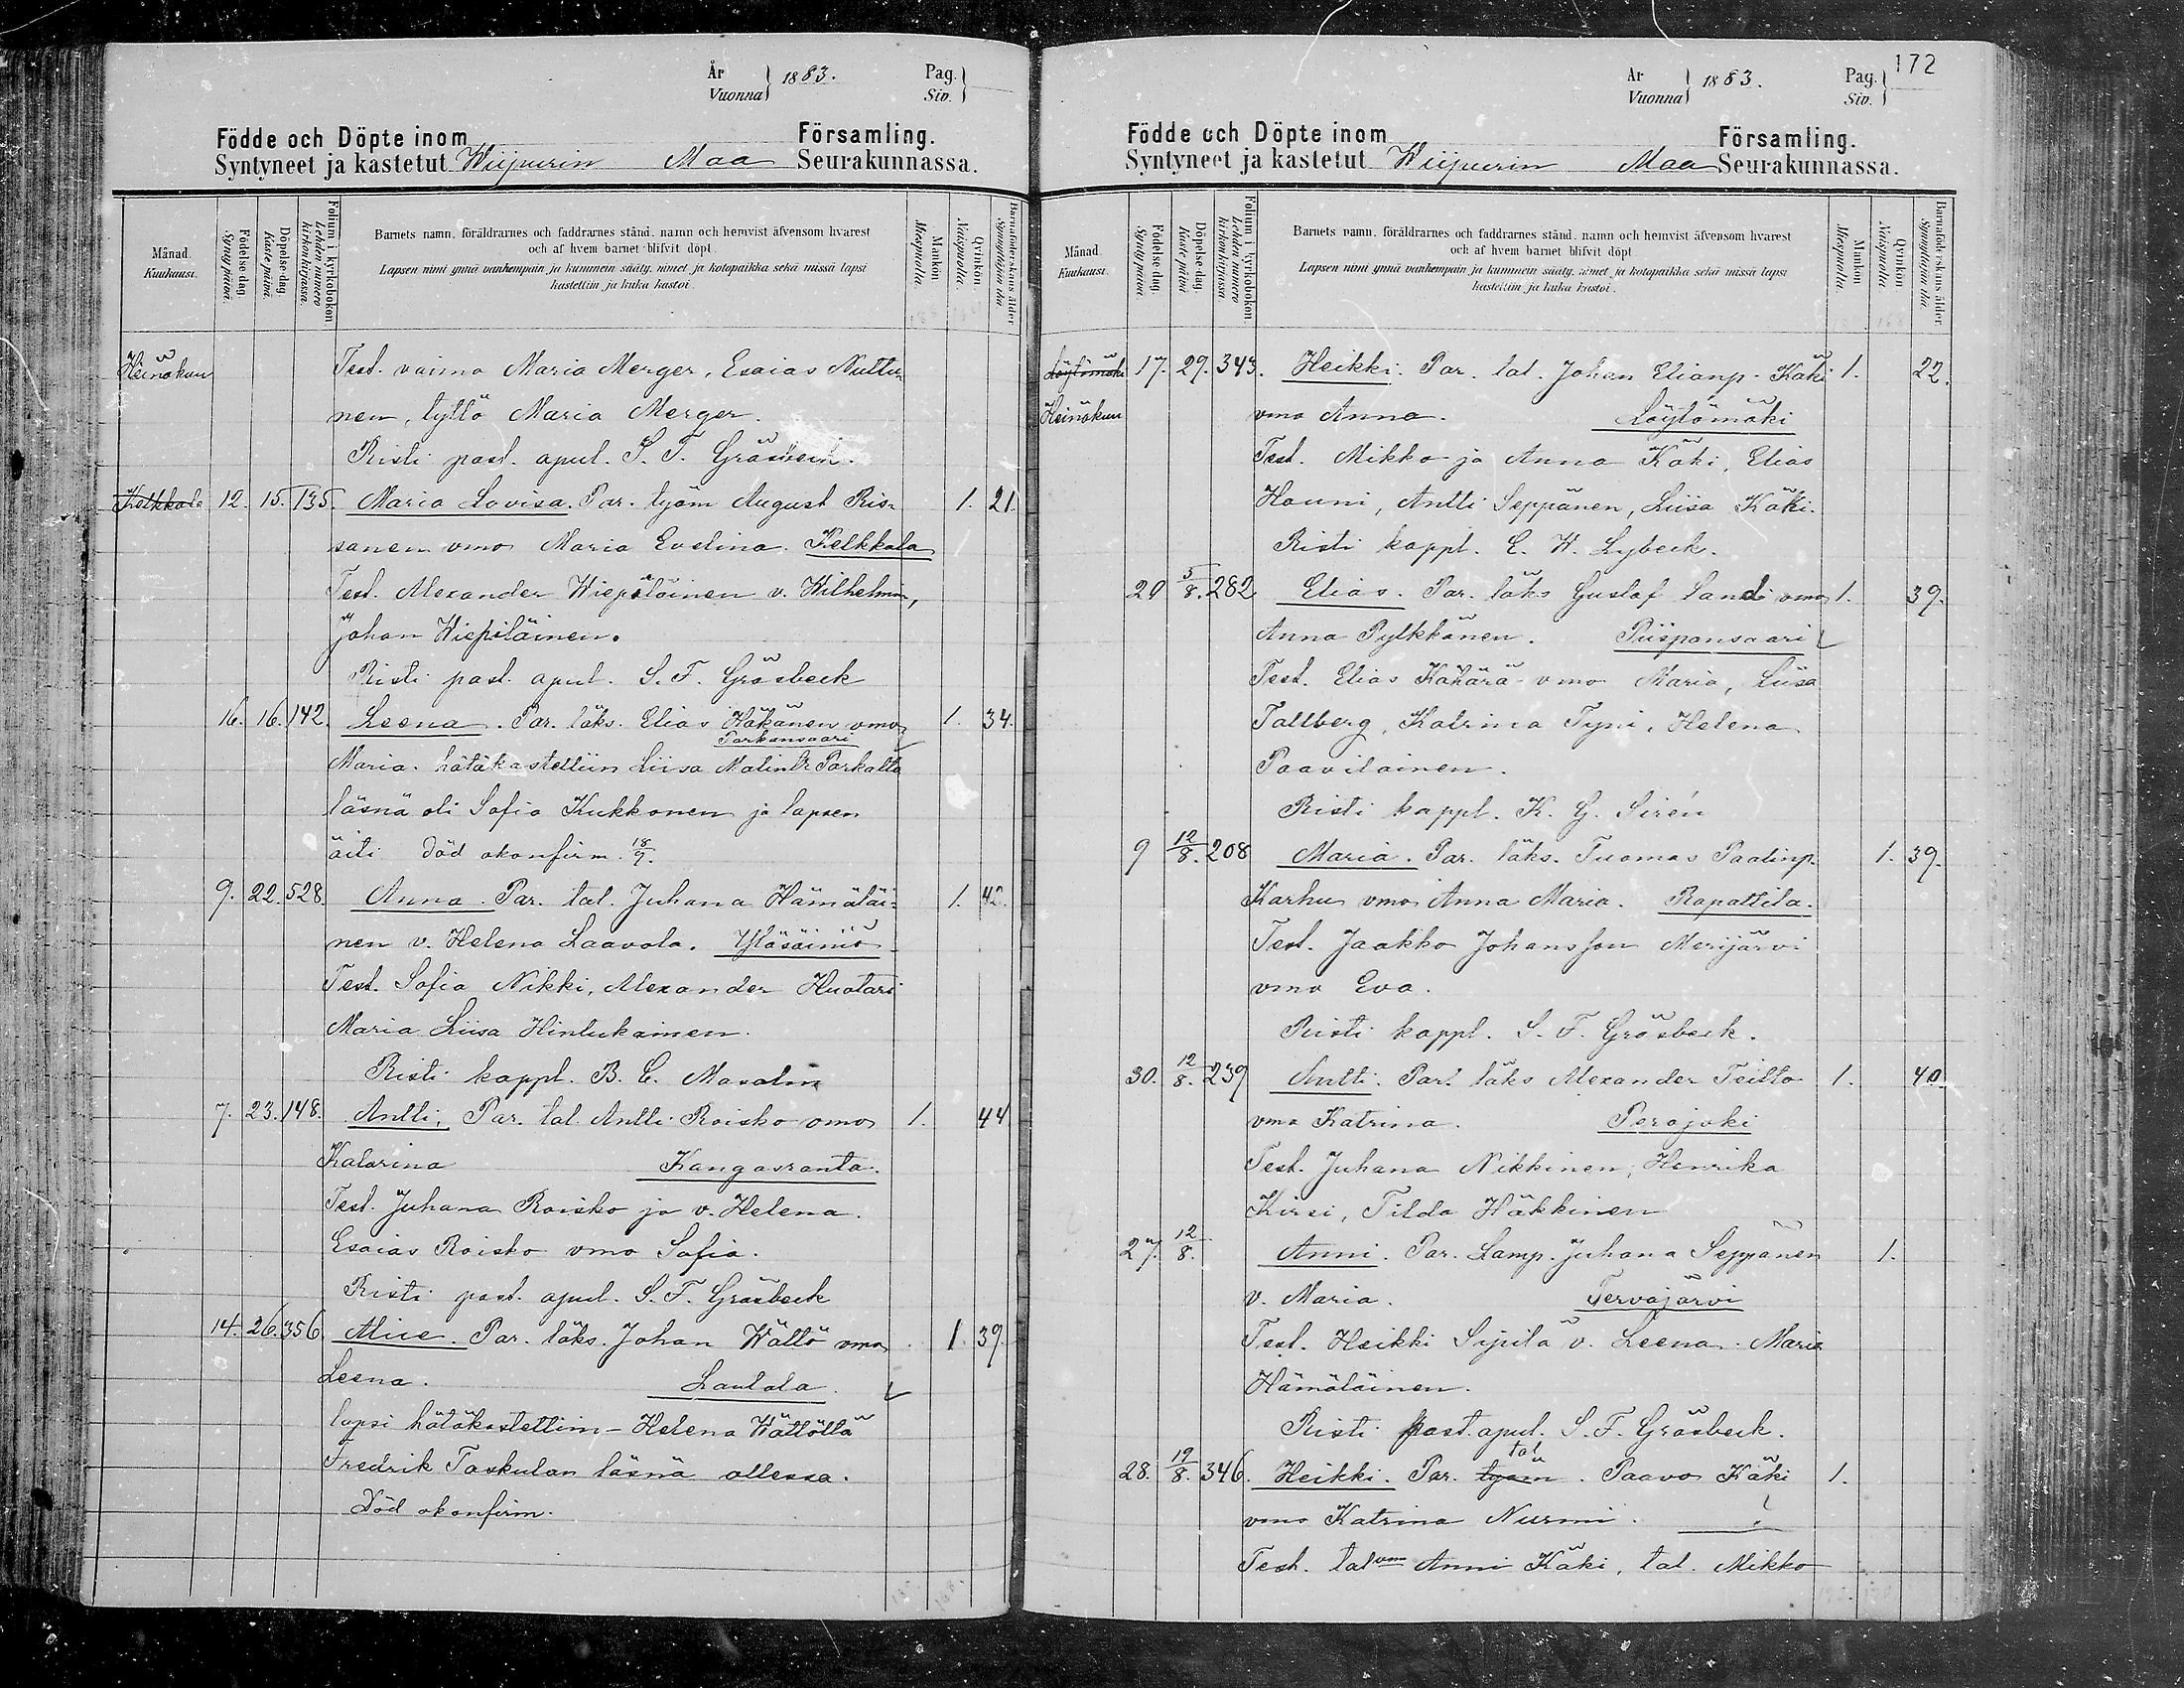 År
Vuonna } 1883.
Pag.
Siv. }
Födde och Döpte inom Församling.
Syntyneet ja kastetut Wiipurin Maa Seurakunnassa.
Månad.
Kuukausi.
Födelse-dag.
Synty päivä.
Döpelse-dag.
Kaste päivä.
Folium i kyrkoboken
Lehden numero kirkonkirjassa.
Barnets namn, föräldrarnes och faddrarnes stånd, namn och hemvist äfvensom hvarest
och af hvem barnet blifvit döpt.
Lapsen nimi ynnä vanhempain ja kummein sääty, nimet ja kotopaikka sekä missä lapsi
kastettiin ja kuka kastoi.
Mankön
Miespuolia.
Qvinkön
Naispuolia.
Barnaföderskans ålder
Synnyttäjän ikä
Heinäkuu Test. vaimo Maria Merger, Esaias Nuttu-
nen, tyttö Maria Merger.
Risti past. apul. S. F. Gräsbeck.
Kelkkala 12. 15. 135. Maria Lovisa. Par. työm August Ris-
sanen vmo Maria Evelina. Kelkkala 1. 21.
Test. Alexander Wiepiläinen v. Wilhelmin,
Johan Wiepiläinen.
Risti past. apul. S. F. Gräsbeck
16. 16. 142. Leena. Par. läks. Elias Häkänen vmo 1. 34.
Parkansaari
Maria. hätäkastettiin Liisa Matintr Parkalta
läsnä oli Sofia Kukkonen ja lapsen
äiti Död okonfirm. 18/9.
9. 22. 528. Anna. Par. tal. Juhana Hämäläi- 1. 42.
nen v. Helena Laavola. Yläsäiniö
Test. Sofia Nikki, Alexander Huotari
Maria Liisa Hintukainen.
Risti kappl. B. C. Masalin
7. 23. 148. Antti, Par. tal. Antti Roisko vmo 1. 44
Katarina Kangasranta.
Test. Juhana Roisko ja v. Helena.
Esaias Roisko vmo Sofia.
Risti past. apul. S. F. Gräsbeck
14. 26. 356. Alice. Par. läks. Johan Wättö vmo 1. 39.
Leena. Lautala.
lapsi hätäkastettiin - Helena Wättöltä
Fredrik Taskulan läsnä ollessa.
Död okonfirm.
172
År
Vuonna } 1883.
Pag.
Siv. }
Födde och Döpte inom Församling.
Syntyneet ja kastetut Wiipurin Maa Seurakunnassa.
Månad.
Kuukausi.
Födelse-dag.
Synty päivä.
Döpelse-dag.
Kaste päivä
Folium i kyrkoboken
Lehden numero kirkonkirjassa
Barnets namn, föräldrarnes och faddrarnes stånd, namn och hemvist äfvensom hvarest
och af hvem barnet blifvit döpt
Lapsen nimi ynnä vanhempain ja kummein sääty, nimet ja kotopaikka sekä missä lapsi
kastettiin ja kuka kastoi.
Mankön
Miespuolia.
Qvinkön
Naispuolia.
Barnaföderskans ålder.
Synnyttäjän ikä
Löytömäki 17. 29. 343. Heikki. Par. tal. Johan Elianp. Käki 1. 22.
Heinäkuu vmo Anna. Löytömäki
Test. Mikko ja Anna Käki, Elias
Houni, Antti Seppänen, Liisa Käki.
Risti kappl. E. W. Lybeck.
20 5/8. 282 Elias. Par. läks Gustaf Landi vmo 1. 39.
Anna Pylkkänen. Piispansaari
Test. Elias Kähärä vmo Maria, Liisa
Tallberg, Katrina Tyni, Helena
Paavilainen.
Risti kappl. K. G. Sirén
9 12/8. 208 Maria. Par. läks. Tuomas Paalinp. 1. 39.
Karhu vmo Anna Maria. Rapattila.
Test. Jaakko Johansson Merijärvi
vmo Eva.
Risti kappl. S. F. Gräsbeck.
30. 12/8. 239 Antti. Par. läks Alexander Teitto 1. 40.
vmo Katrina. Perojoki
Test. Juhana Nikkinen, Henrika
Kirsi, Tilda Häkkinen
27. 12/8. Anni. Par. Lamp. Juhana Seppänen 1.
v. Maria. Tervajärvi
Test. Heikki Sipilä v. Leena. Maria
Hämäläinen.
Risti past. apul. S. F. Gräsbeck.
tal
28. 19/8. 346. Heikki. Par. työm. Paavo Käki 1.
vmo Katrina Nurmi.
Test. tal vmo Anni Käki, tal. Mikko